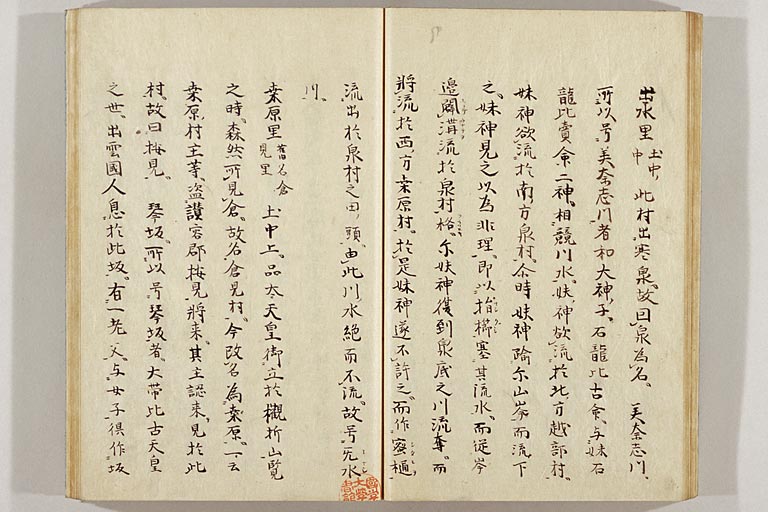 出水里 土中中 此村出寒泉故因泉為名 美奈志川
所以号美奈志川者和大神子石龍比古命与妹石
龍比賣命二神相競川水妋神欲流於北方越部村
妹神欲流於南方泉村尒時妋神踰尓山岑而流下
之妹神見之以為非理即以指櫛塞其流水而従岑
邊闢溝流於泉村格尓妋神復到泉底之川流奪而
将流於西方桒原村於是妹神遂不許之而作密樋
流出於泉村之田頭由此川水絶而不流故号无水
川
桒原里 舊名倉見里 土中上品太天皇御立於槻折山覧
之時森然所見倉故名倉見村今改名為桒原一云
桒原村主等盗讃容郡桉見将来其主認来見於此
村故曰桉見 琴坂所以号琴坂者大帯比古天皇
之世出雲國人息於此坂有一老父与女子倶作坂